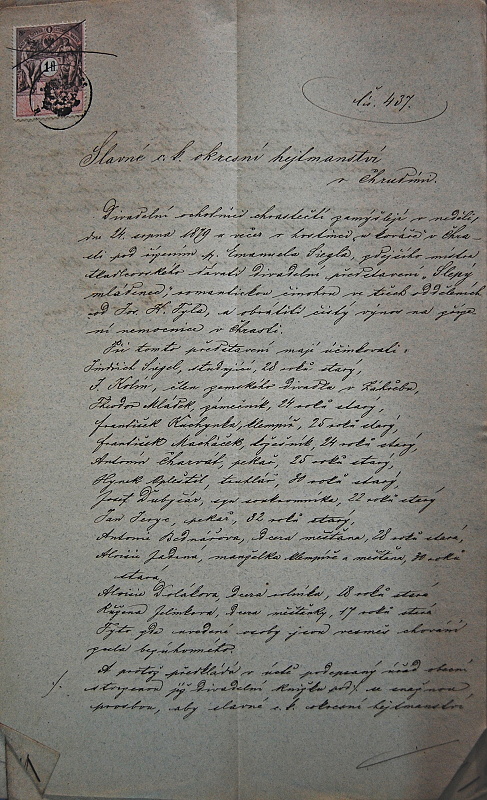 10
Čís. 437.
Slavné c. k. okresní hejtmanství
v Chrudimi.
Divadelní ochotníci chrastečtí zamýšlejí v neděli,
dne 24. srpna 1879 o večer v hostinci u Kovářů v Chra-
sti pod řízením p. Emanuela Siegla, zdejšího mistra
tkadlcovského dávati divadelní představení, Slepý
mládenec, romantickou činohru ve třech odděleních
od Jos. K. Tyla, a obrátiti čistý výnos na zřízení
nemocnice v Chrasti.
Při tomto představení mají účinkovati:
Jindřich Siegel, studující, 28 roků starý,
F. Kolín, člen zemského divadla v Záhřebu,
Theodor Mládek, 24 roků starý,
František Kuchynka, klempíř, 25 roků starý,
František Macháček, 24 roků starý,
Antonín Charvát, pekař, 25 roků starý,
Hynek truhlář, 30 roků starý,
Josef syn soukromníka, 22 roků starý
Jan pekař, 32 roků starý,
Antonie Bednářova, dcera měšťana, 28 roků stará,
Aloisie manželka klempíře a měšťana, 30 roků
stará,
Aloisie dcera rolníka, 18 roků stará
Růžena Jelínkova, dcera měštěnky, 17 roků stará
Tyto zde uvedené osoby jsou vesměs chování
zcela bezúhonného.
A protož předkládá v úctě podepsaný úřad obecní
divadelní knížku pod ·/. se snažnou
prosbou, aby slavné c. k. okresní hejtmanství